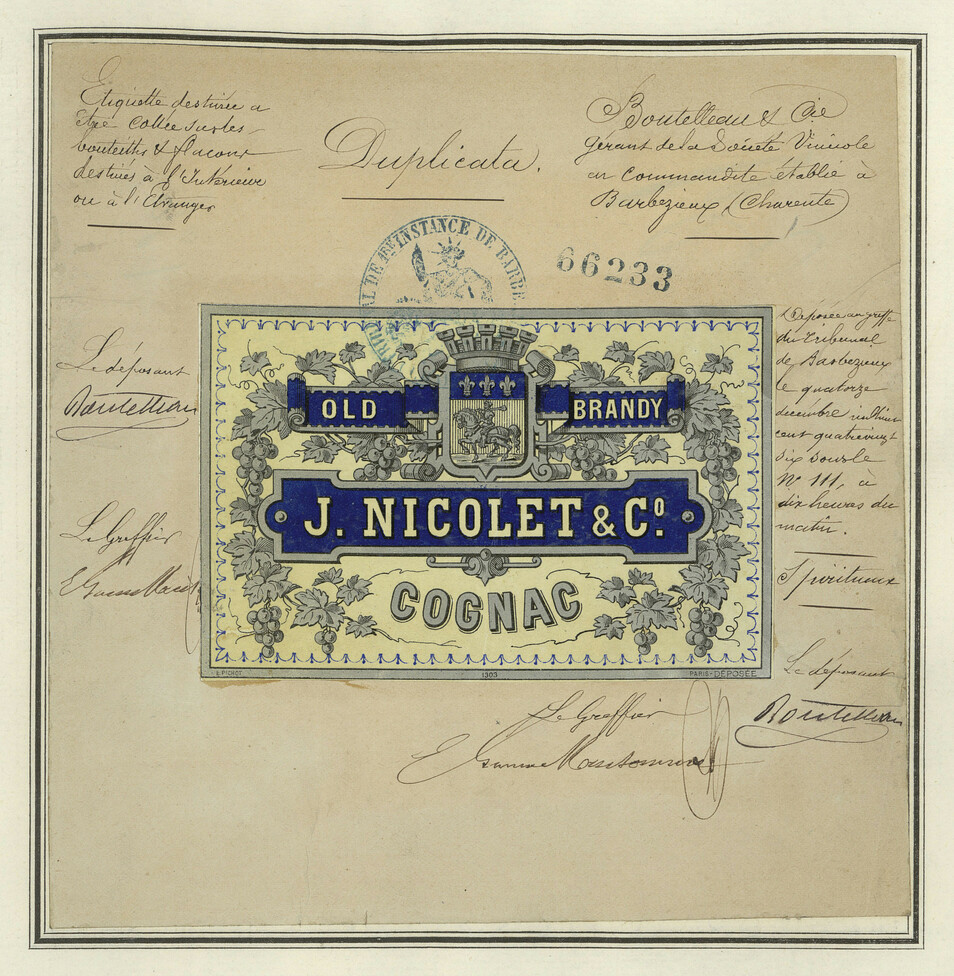 Etiquette destinée a
être Collée sur les
bouteilles & flacons
destinés à l'Intérieur
ou à l'Etranger
Duplicata.
Boutelleau & Cie
gérant de la Société Vinicole
en commandite établie à
Barbezieux (Charente)
AL DE 1ERE INSTANCE DE BARBE
66233
Le déposant
Boutelleau
Le Greffier
OLD BRANDY
J. NICOLET & Co.
COGNAC
L. PICHOT 1303 PARIS-DÉPOSÉE
Déposée au greffe
du Tribunal
de Barbezieux
le quatorze
décembre mil huit
cent quatrevingt
six sous le
No 111, à
dix heures du
matin.
Spiritueux
Le déposant
Boutelleau
Le Greffier